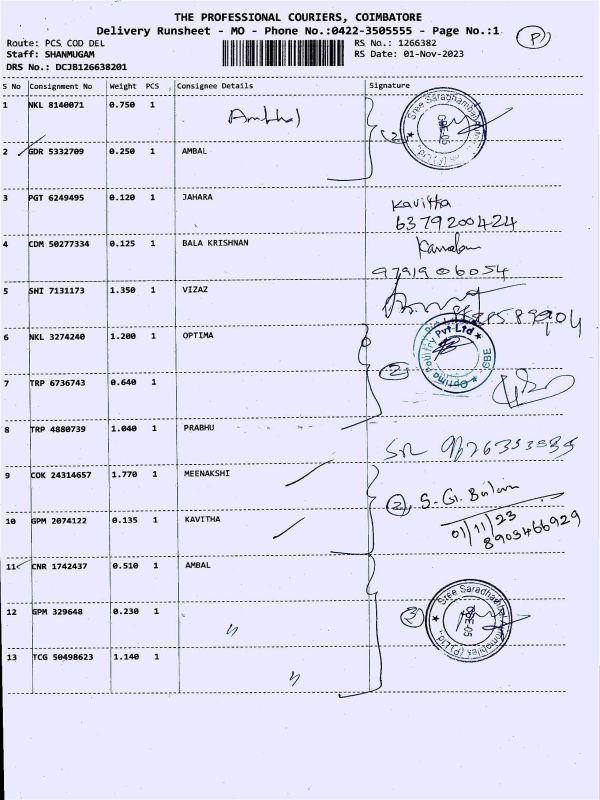 THE PROFESSIONAL COURIERS, COIMBATORE
Delivery Runsheet - MO - Phone No.:0422-3505555 - Page No.:1
P
Route: PCS COD DEL
RS No.: 1266382
Staff: SHANMUGAM
RS Date: 01-Nov-2023
DRS No.: DCJB126638201
S No Consignment No Weight PCS Consignee Details Signature
1 NKL 8140071 0.750 1 Ambal
Sree Saradhambal
2 GDR 5332709 0.250 1 AMBAL
3 PGT 6249495 0.120 1 JAHARA
Kavitha
6379200424
4 CDM 50277334 0.125 1 BALA KRISHNAN
9791906054
5 SHI 7131173 1.350 1 VIZAZ
6 NKL 3274240 1.200 1 OPTIMA
2
Optima Poultry Pvt Ltd CBE
7 TRP 6736743 0.640 1
8 TRP 4880739 1.040 1 PRABHU
9 COK 24314657 1.770 1 MEENAKSHI
2
01/11/23
8903466929
10 GPM 2074122 0.135 1 KAVITHA
11 CNR 1742437 0.510 1 AMBAL
3
Sree Saradhambal Automobiles (P) Ltd.,
12 GPM 329648 0.230 1 "
13 TCG 50498623 1.140 1 "